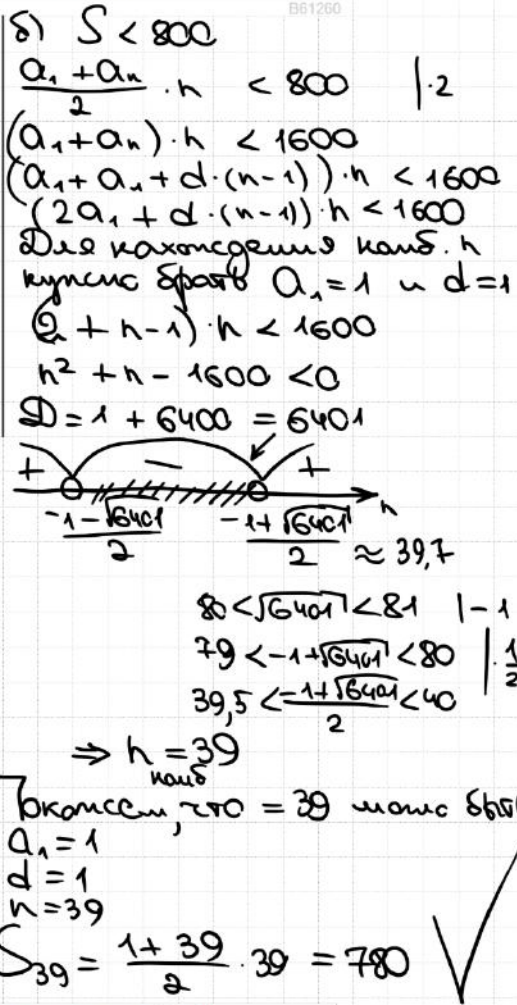 B61260
б) S < 800
(a₁ + aₙ)/2 · n < 800 |·2
(a₁ + aₙ) · n < 1600
(a₁ + a₁ + d·(n-1))·n < 1600
(2a₁ + d·(n-1))·n < 1600
Для нахождения наиб. n
нужно брать a₁ = 1 и d = 1
(2 + n - 1)·n < 1600
n² + n - 1600 < 0
D = 1 + 6400 = 6401
+ - + n
(-1-√6401)/2 (-1+√6401)/2 ≈ 39,7
80 < √6401 < 81 |-1
79 < -1+√6401 < 80 |·1/2
39,5 < (-1+√6401)/2 < 40
⇒ n наиб = 39
Покажем, что = 39 может быть
a₁ = 1
d = 1
n = 39
S₃₉ = (1 + 39)/2 · 39 = 780